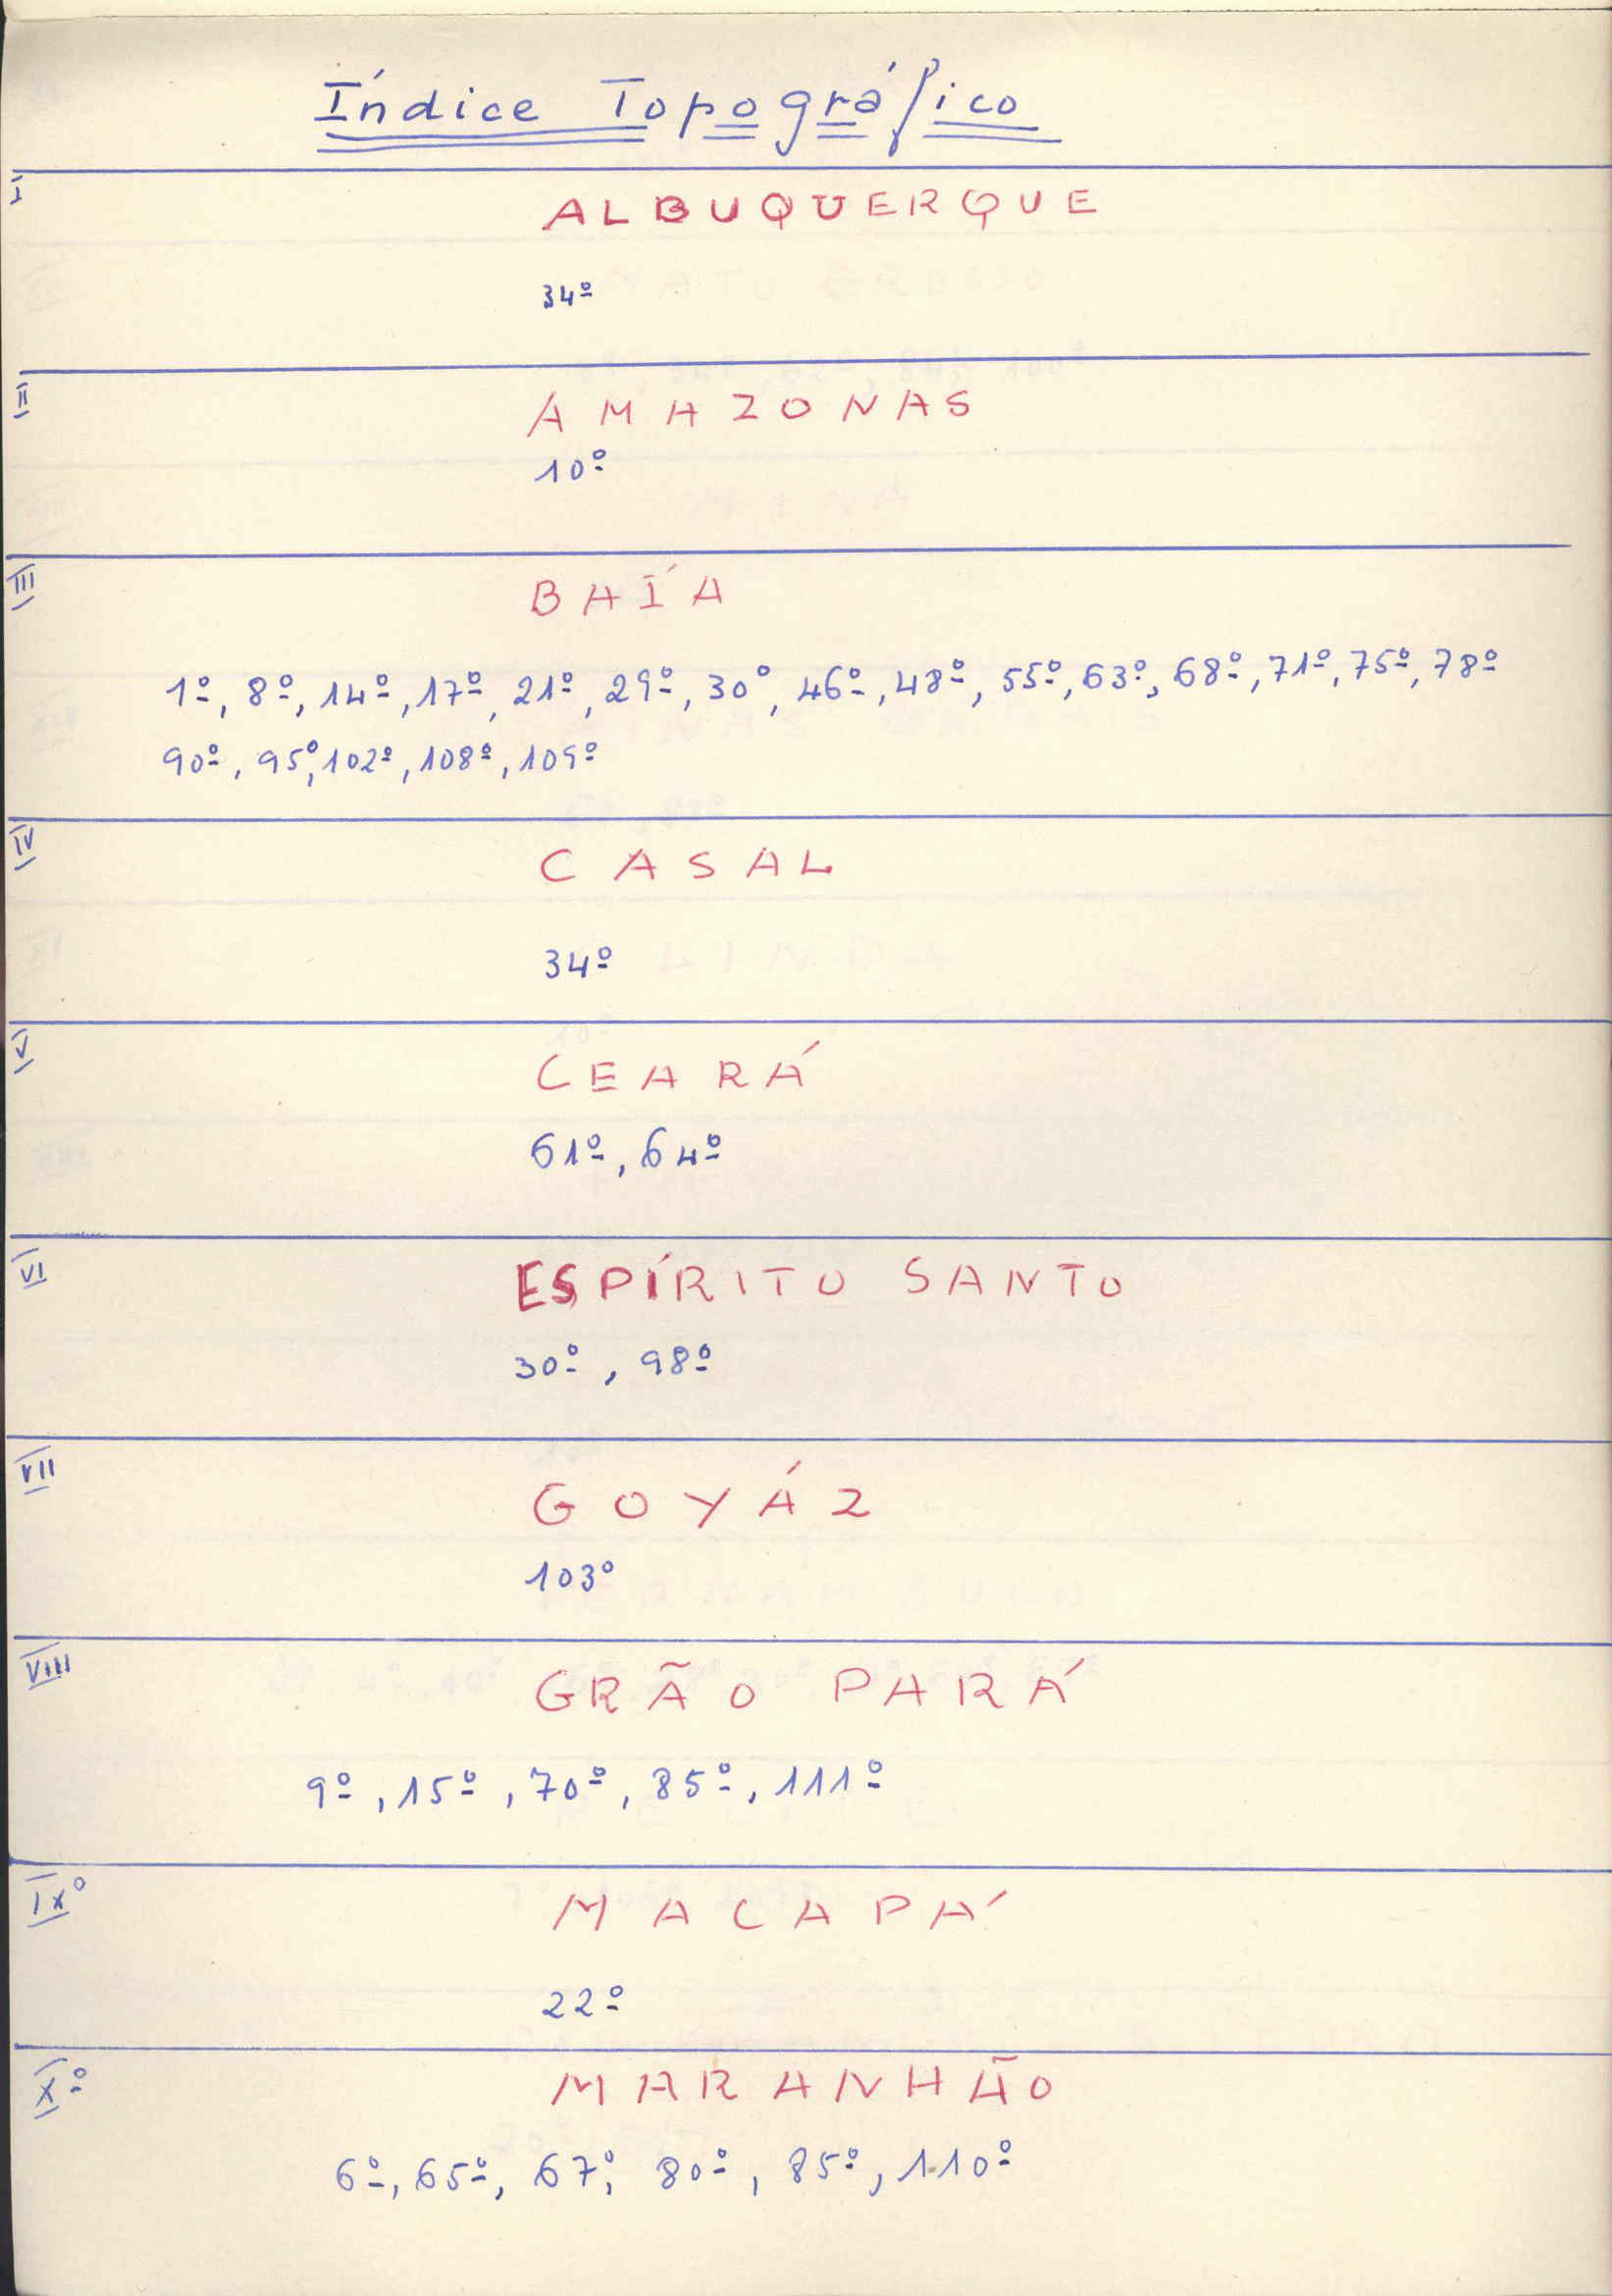 Índice Topográfico
I
ALBUQUERQUE
34º
II
AMAZONAS
10º
III
BAÍA
1º, 8º, 14º, 17º, 21º, 29º, 30º, 46º, 48º, 55º, 63º, 68º, 71º, 75º, 78º
90º, 95º, 102º, 108º, 109º
IV
CASAL
34º
V
CEARÁ
61º, 64º
VI
ESPÍRITO SANTO
30º, 98º
VII
GOYÁZ
103º
VIII
GRÃO PARÁ
9º, 15º, 70º, 85º, 111º
IXº
MACAPÁ
22º
Xº
MARANHÃO
6º, 65º, 67º, 80º, 85º, 110º